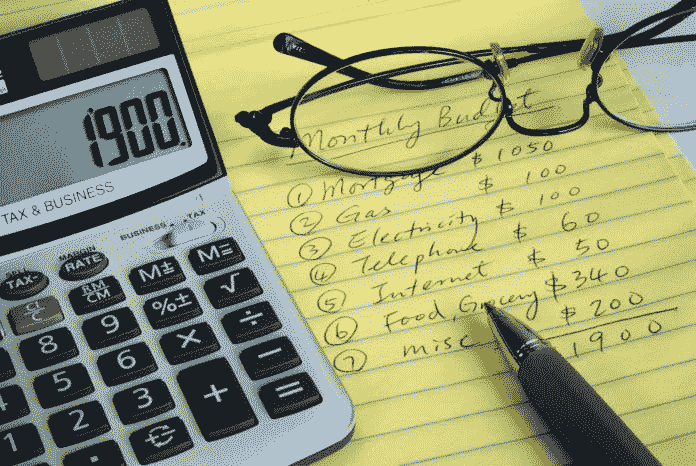 1900.
TAX & BUSINESS
BUSINESS TAX
TAX-
MARGIN
RATE
M± M=
RM
CM
%± √
8 9 × ÷
5 6 −
2 3 + =
1 .
Monthly Budget
① Mortgage $ 1050
② Gas $ 100
③ Electricity $ 100
④ Telephone $ 60
⑤ Internet $ 50
⑥ Food, Grocery $ 340
⑦ misc $ 200
1900